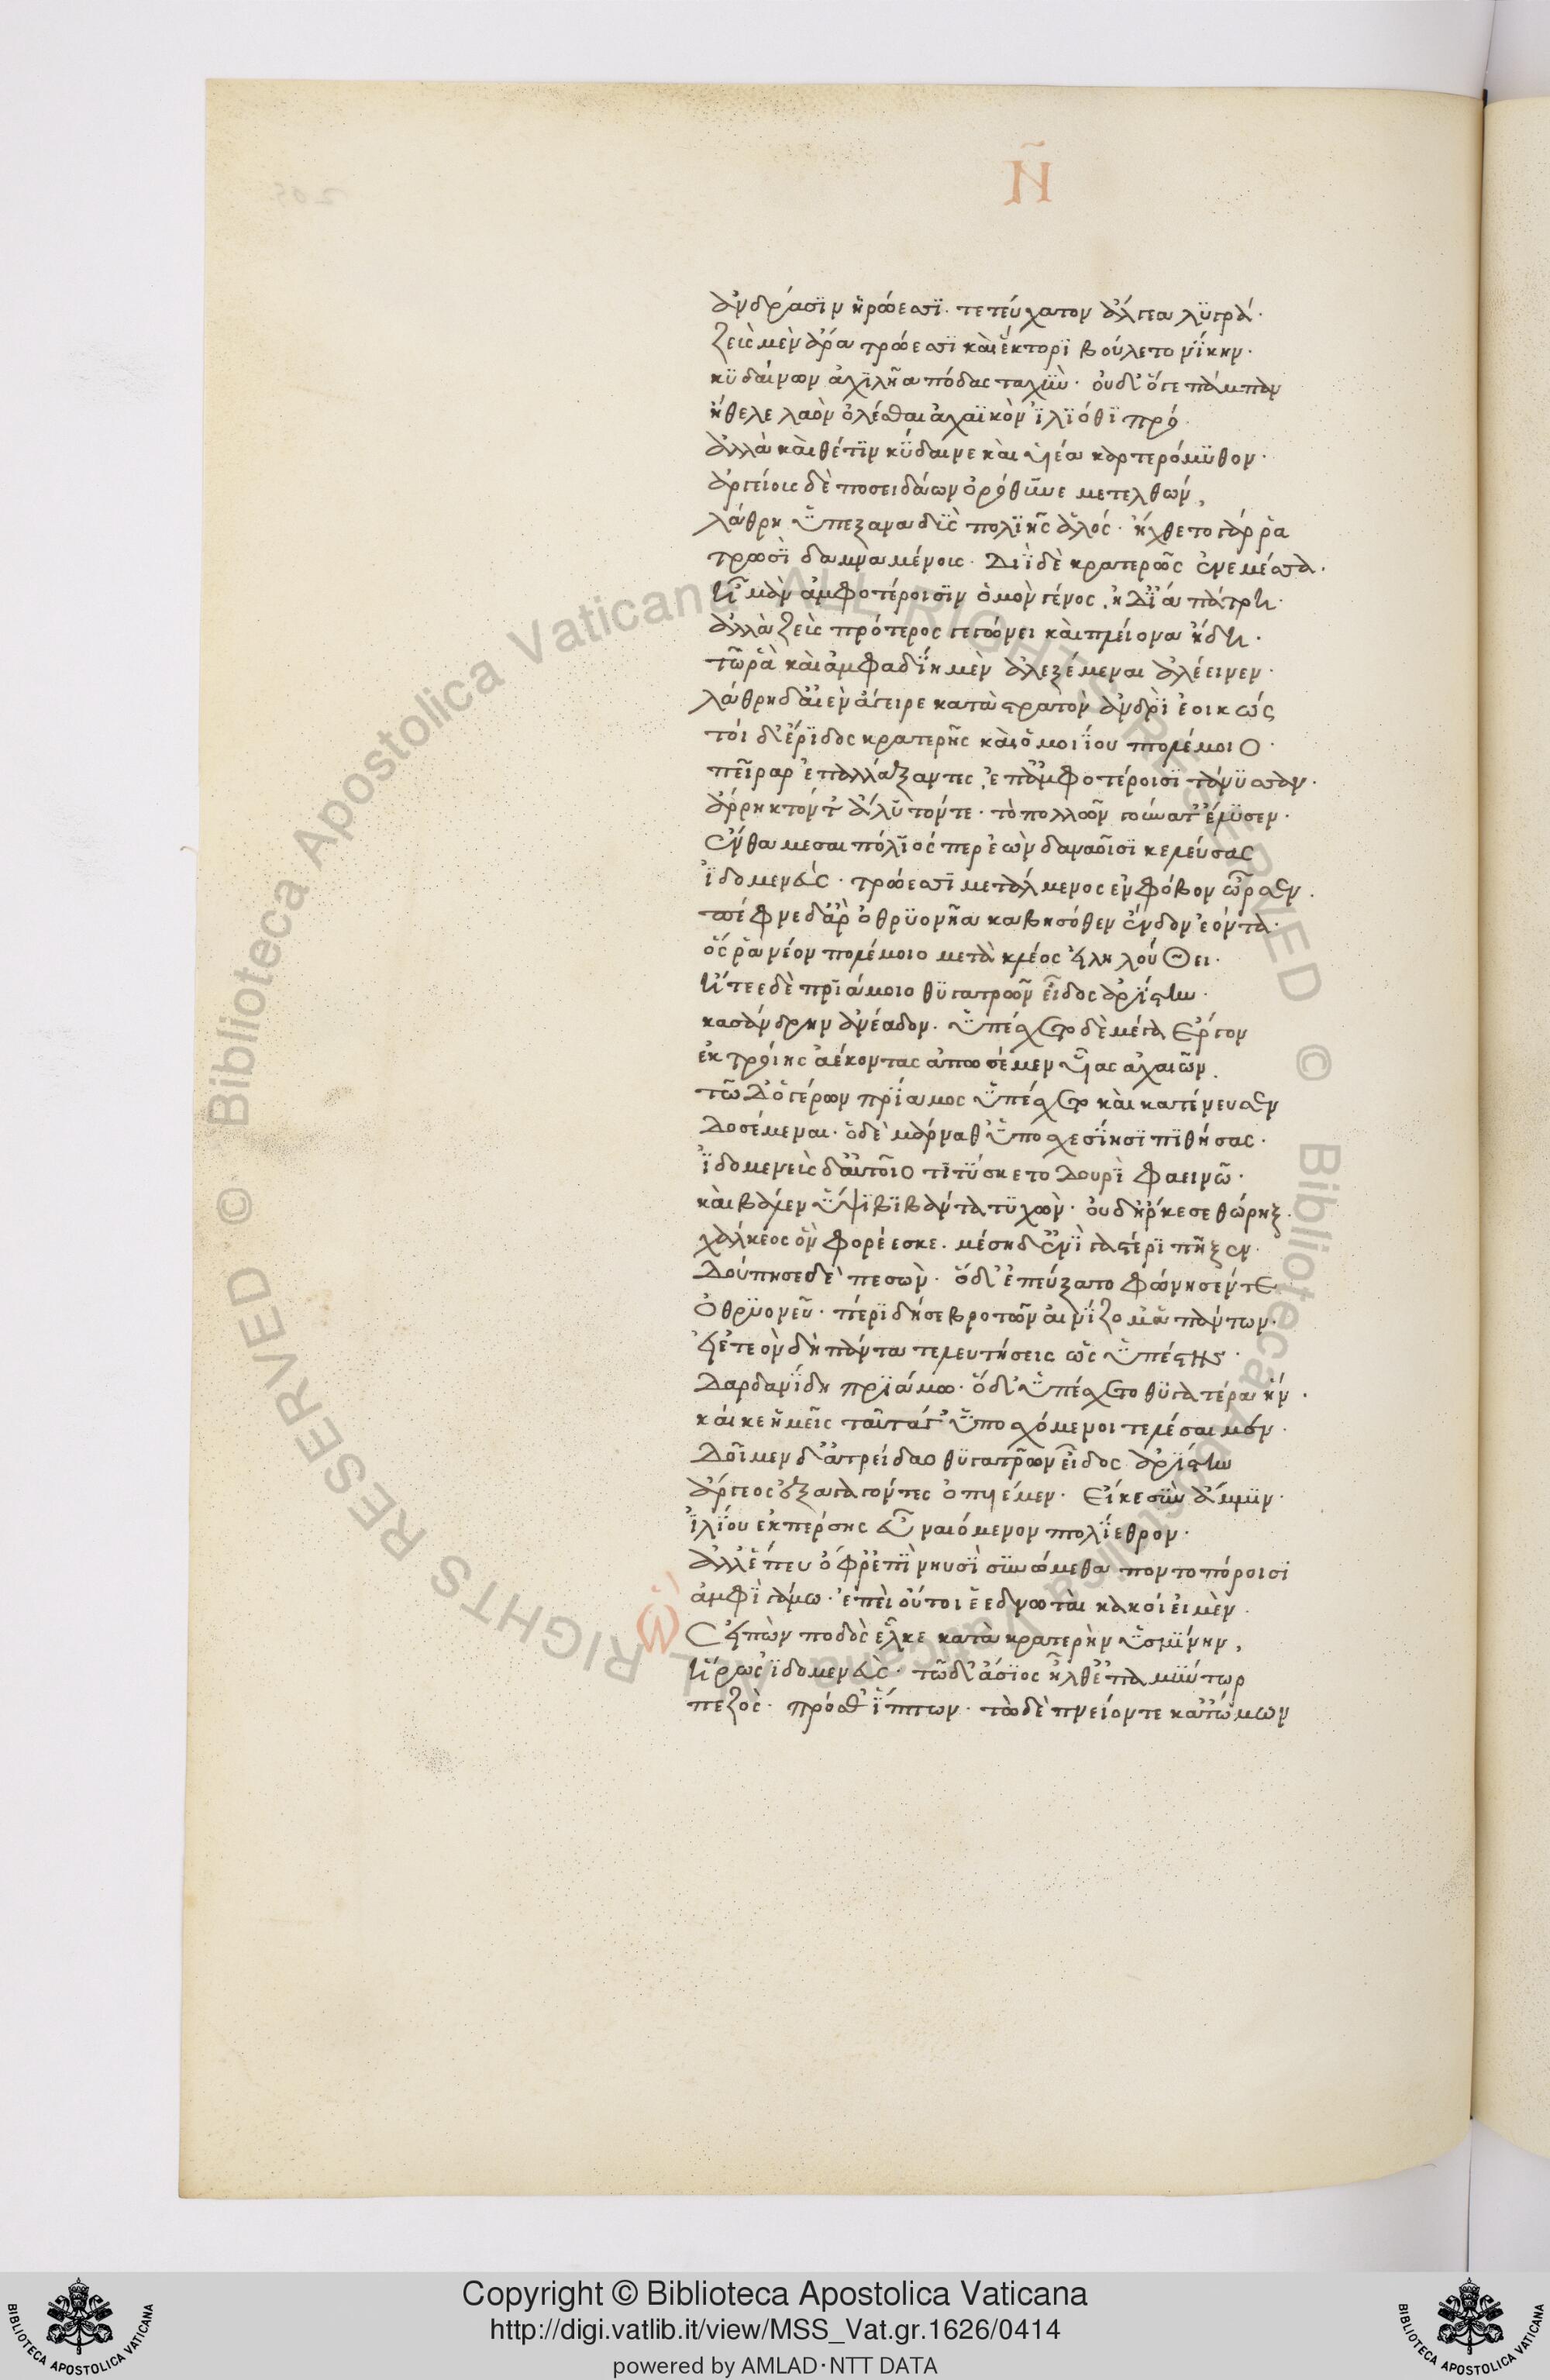 Ν̃
ἀνδράσϊν ἡρώεσϊ. τετεύχατον ἄλγεα λϋγρά·
ζεὺς μὲν ἄρα τρώεσϊ καὶ ἕκτορϊ βούλετο νΐκην·
κϋδαίνων ἀχϊλῆα πόδας ταχϋὺ· οὐδ' ὅγε πάμπαν
ἤθελε λαὸν ὀλέσθαι ἀχαϊκὸν ἰλϊόθϊ πρό·
ἀλλὰ καὶ θέτϊν κΰδαινε καὶ υἱέα καρτερόμϋθον·
ἀργείους δὲ ποσειδάων ὀρόθῡνε μετελθών,
λάθρη ὑπεξαναδὺς πολϊῆς ἁλός· ἤχθετο γάρ ῥα
τρωσϊ δαμναμένους· Διῒ δὲ κρατερῶς ἐνεμέσσα·
ἦ μὰν ἀμφοτέροισϊν ὁμὸν γένος, ἠδ' ἴα πάτρη·
ἀλλὰ ζεὺς πρότερος γεγώνει καὶ πλείονα ἤδη·
τῶ ῥα καὶ ἀμφαδΐην μὲν ἀλεξέμεναι ἀλέεινεν·
λάθρη δ' αἰὲν ἄγειρε κατὰ στρατὸν ἀνδρὶ ἐοικώς
τοὶ δ' ἔρϊδος κρατερῆς καὶ ὁμοιΐου πολέμοιο·
πεῖραρ ἐπαλλάξαντες, ἐπ' ἀμφοτέροισϊ τάνϋσσαν·
ἄρρηκτόν τ' ἄλϋτόν τε· τὸ πολλῶν γούνατ' ἔλϋσεν·
ἔνθα μεσαιπόλϊός περ ἐὼν δαναοῖσϊ κελεύσας
ϊδομενεύς· τρώεσϊ μετάλμενος ἐν φόβον ὦρσεν·
πέφνε δ' ἄρ' ὀθρϋονῆα καβησόθεν ἔνδον ἐόντα·
ὅς ῥα νέον πολέμοιο μετὰ κλέος εἰληλούθει·
ἤτεε δὲ πρϊάμοιο θϋγατρῶν εἶδος ἀρίστην·
κασάνδρην ἀνάεδνον· ὑπέσχετο δὲ μέγα ἔργον
ἐκ τροίης ἀέκοντας ἀπωσέμεν υἷας ἀχαιῶν.
τῶ δ' ὁ γέρων πρΐαμος ὑπέσχετο καὶ κατένευσεν
Δοσέμεναι· ὁ δὲ μάρναθ' ὑποσχεσΐησϊ πϊθήσας·
ϊδομενεὺς δ' αὐτοῖο τϊτΰσκετο Δουρὶ φαεινῶ·
καὶ βάλεν ὕψϊ βϊβάντα τϋχὼν· οὐδ' ἤρκεσε θώρηξ·
χάλκεος ὃν φορέεσκε· μέση δ' ἐνὶ γαστέρϊ πῆξεν·
Δούπησε δὲ πεσὼν· ὁ δ' ἐπεύξατο φώνησέν τε·
Ὀθρϋονεῦ· πέρϊ δή σε βροτῶν αἰνίζομ' ἁπάντων·
εἰ ἐτεὸν δὴ πάντα τελευτήσεις ὡς ὑπέστης·
Δαρδανΐδη πρϊάμω· ὁ δ' ὑπέσχετο θϋγατέρα ἥν·
καί κε ἡμεῖς ταῦτά γ' ὑποσχόμενοι τελέσαιμεν·
Δοῖμεν δ' ἀτρείδαο θϋγατρῶν εἶδος ἀρΐστην
ἄργεος ἐξαγαγόντες ὀπυιέμεν· εἴκε σὺν ἄμμϊν·
ϊλΐου ἐκπέρσης εὖ ναιόμενον πολΐεθρον·
ἀλλ' ἕπευ ὄφρ' ἐπὶ νηυσὶ σϋνώμεθα ποντοπόροισϊ
ἀμφὶ γάμω· ἐπεὶ οὔτοι ἐεδνωταὶ κακοί εἰμὲν·
Ὣς εἰπὼν ποδὸς ἕλκε κατὰ κρατερὴν ὑσμΐνην,
ἥρως ϊδομενεὺς· τῶ δ' ἄσϊος ἦλθ' ἐπαμΰντωρ
πεζὸς· πρόσθ' ἵππων· τὼ δὲ πνείοντε κατ' ὤμων
Copyright © Biblioteca Apostolica Vaticana
http://digi.vatlib.it/view/MSS_Vat.gr.1626/0414
powered by AMLAD·NTT DATA
BIBLIOTECA APOSTOLICA VATICANA
BIBLIOTECA APOSTOLICA VATICANA
© Biblioteca Apostolica Vaticana ALL RIGHTS RESERVED © Biblioteca Apostolica Vaticana ALL RIGHTS RESERVED